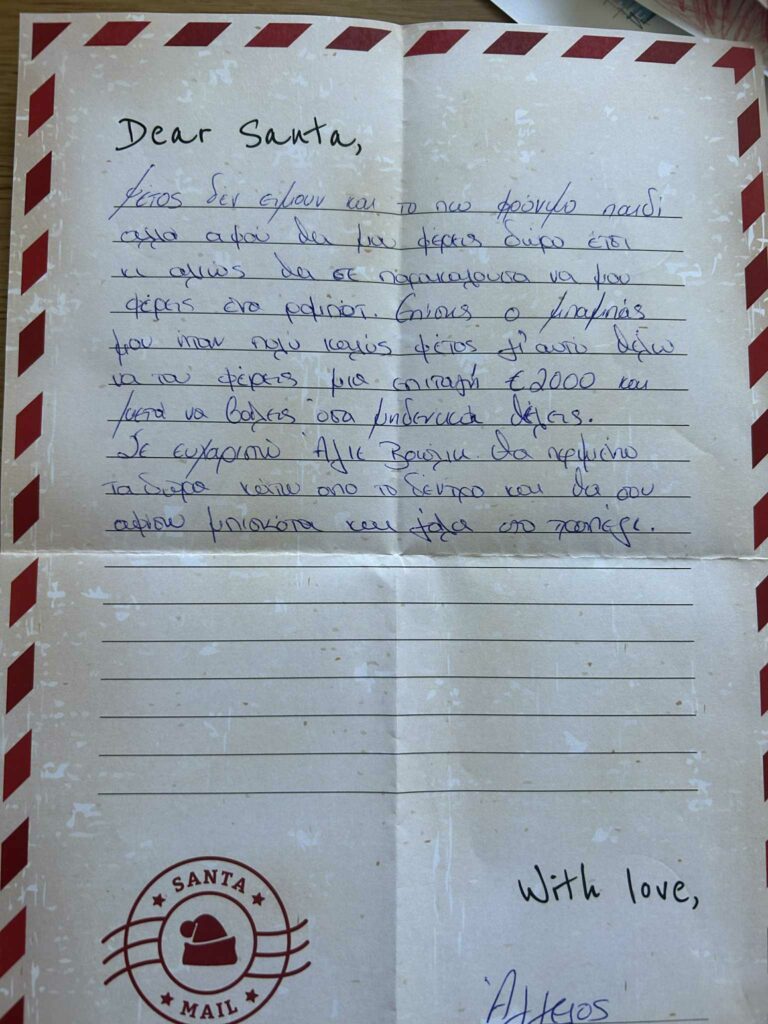 Dear Santa,
φέτος δεν ειμουν και το πιο φρόνιμο παιδί
αλλά αφού θα μου φέρεις δώρο έτσι
κι αλλιώς θα σε παρακαλούσα να μου
φέρεις ένα ρομπότ. Επίσης ο μπαμπάς
μου ήταν πολύ καλός φέτος γι' αυτό θέλω
να του φέρεις μια επιταγή €2000 και
μετά να βάλεις όσα μηδενικά θέλεις.
Σε ευχαριστώ Άγιε Βασίλη. Θα περιμένω
τα δώρα κάτω από το δέντρο και θα σου
αφήσω μπισκότα και γάλα στο τραπέζι.
With love,
SANTA
MAIL